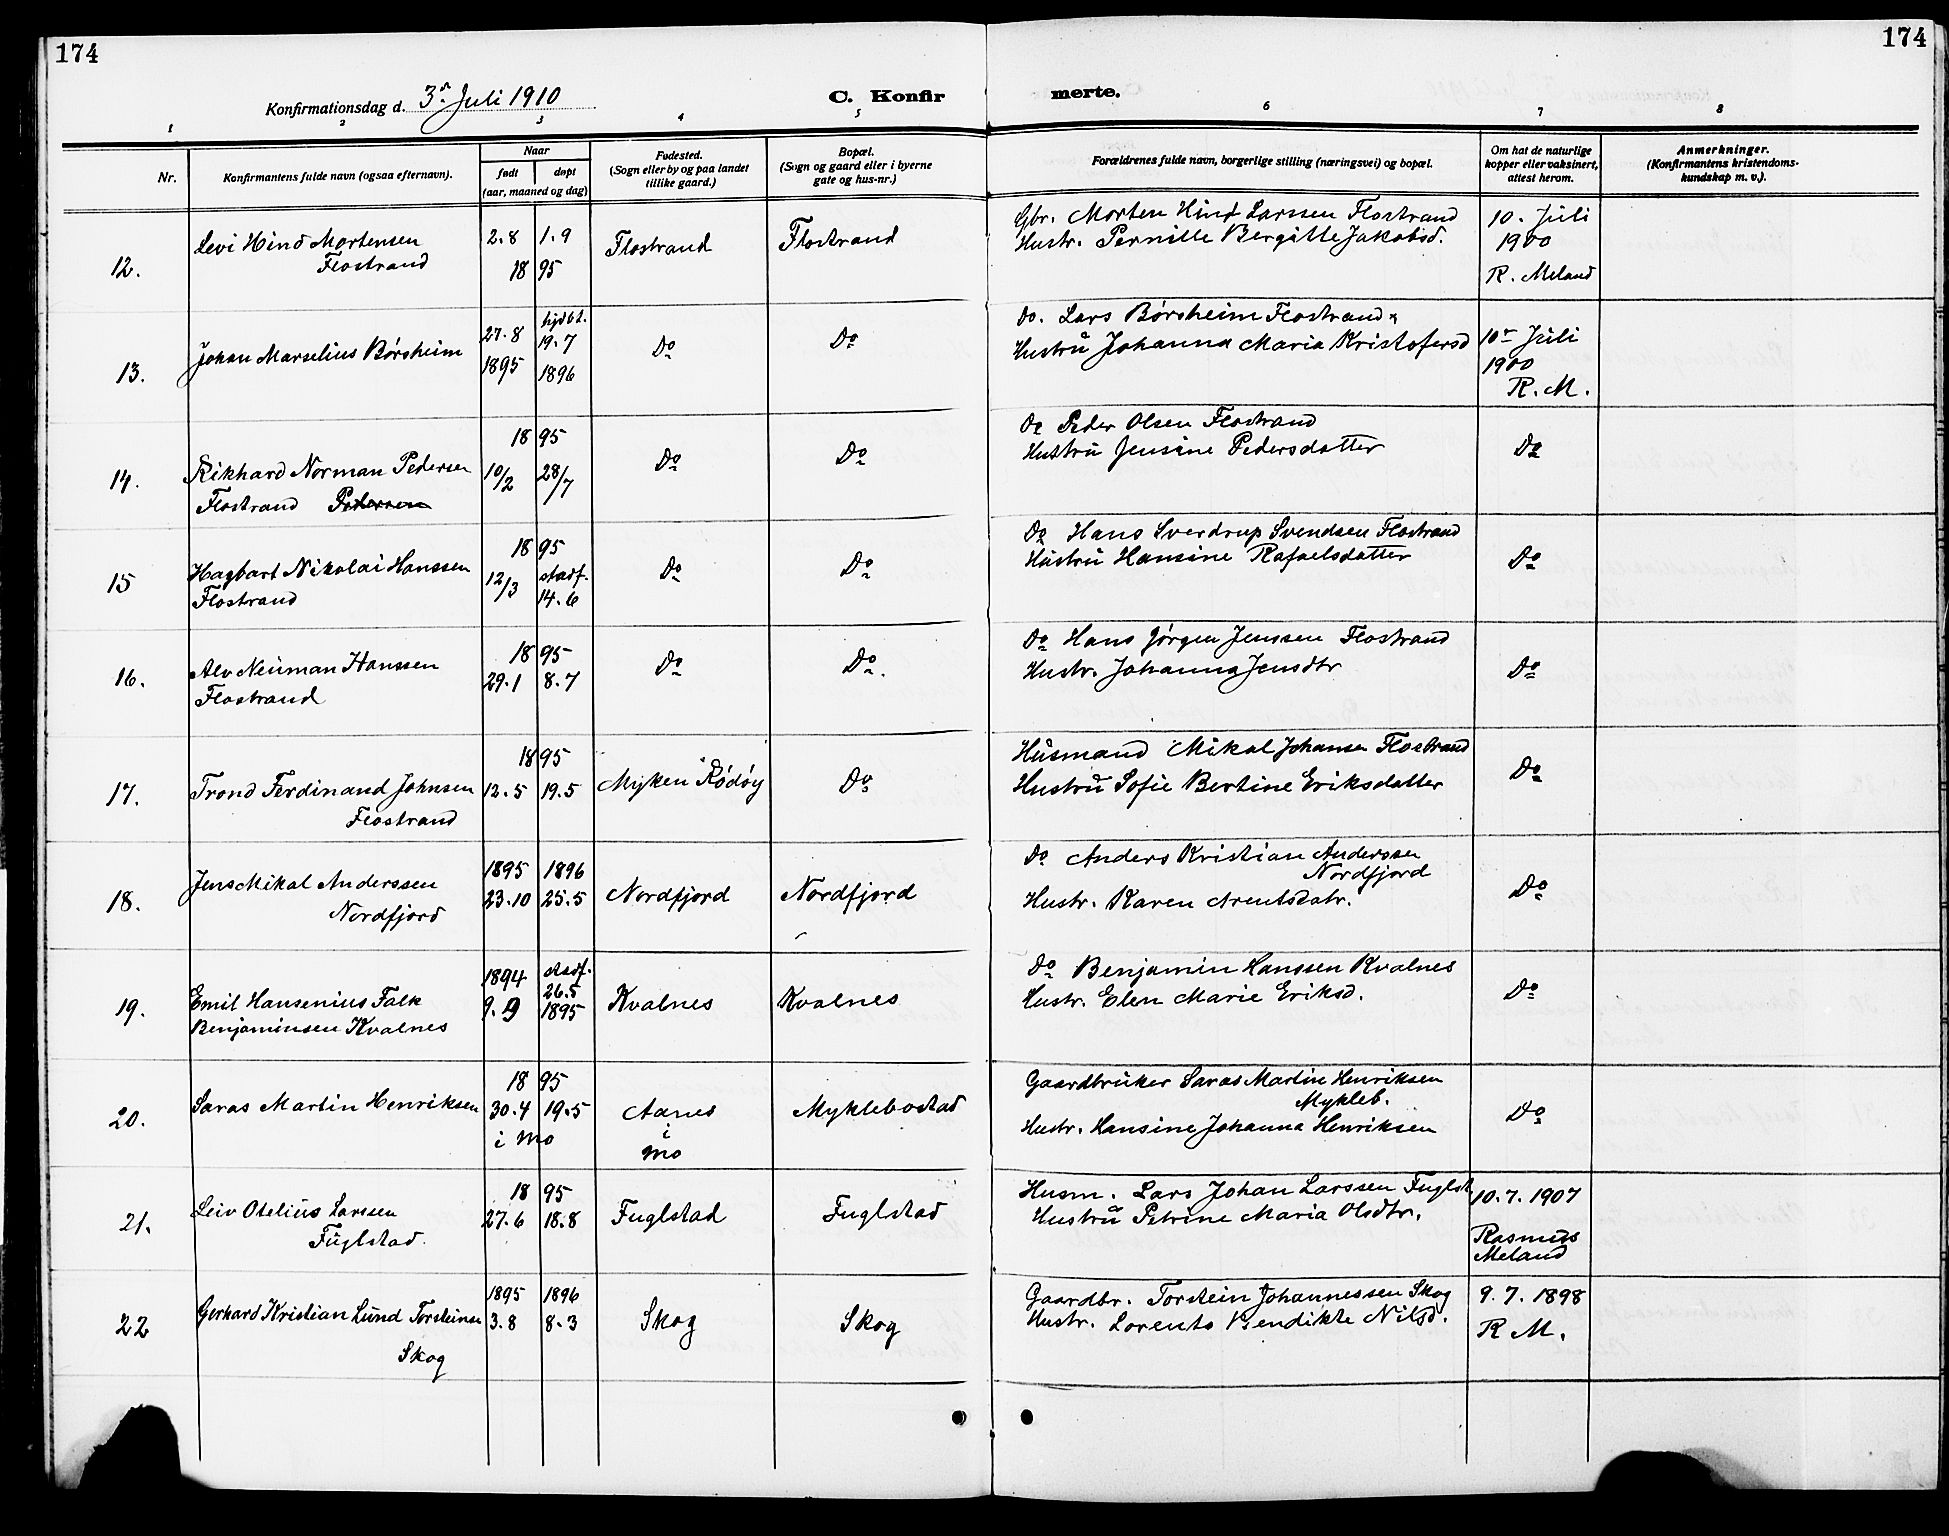 174
174
Konfirmationsdag d. 3die Juli 1910
C. Konfir
merte.
1 2 3 4 5 6 7 8
Nr.
Konfirmantens fulde navn (ogsaa efternavn).
Naar
født
døpt
(aar, maaned og dag)
Fødested.
(Sogn eller by og paa landet
tillike gaard.)
Bopæl.
(Sogn og gaard eller i byerne
gate og hus-nr.)
Forældrenes fulde navn, borgerlige stilling (næringsvei) og bopæl.
Om hat de naturlige
kopper eller vaksinert,
attest herom.
Anmerkninger.
(Konfirmantens kristendoms-
kundskap m. v.).
12.
Levi Hind Mortensen
Flostrand
2.8 1.9
18 95
Flostrand
Flostrand
Gbr. Morten Hind Larssen Flostrand
Hustr. Pernille Bergitte Jakobsd.
10. Juli
1900
R. Meland
13.
Johan Marselius Børsheim
27.8
1895
hjdbt.
19.7
1896
Do
Do
Do. Lars Børsheim Flostrand
Hustru Johanna Maria Kristofersd
10 Juli
1900
R. M.
14.
Rikhard Norman Pedersen
Flostrand Pedersen
18 95
10/2 28/7
Do
Do
Do Peder Olsen Flostrand
Hustru Jensine Pedersdatter
Do
15
Hagbart Nikolai Hanssen
Flostrand
18 95
12/3 stadf.
14.6
Do
Do
Do Hans Sverdrup Svendsen Flostrand
Hustru Hansine Rafaelsdatter
Do
16.
Alv Neuman Hanssen
Flostrand
18 95
29.1 8.7
Do
Do.
Do Hans Jørgen Jenssen Flostrand
Hustr. Johanna Jensdtr
Do
17.
Trond Ferdinand Johnsen
Flostrand
18 95
12.5 19.5
Myken Rødøy
Do
Husmand Mikal Johansen Flostrand
Hustru Sofie Bertine Eriksdatter
Do
18.
Jens Mikal Anderssen
Nordfjord
1895 1896
23.10 25.5
Nordfjord
Nordfjord
Do Anders Kristian Anderssen
Nordfjord
Hustr. Karen Arentsdatr.
Do
19.
Emil Hansenius Falk
Benjaminsen Kvalnes
1894
9.9
stadf.
26.5
1895
Kvalnes
Kvalnes
Do Benjamin Hanssen Kvalnes
Hustr. Elen Marie Eriksd.
Do
20.
Saras Martin Henriksen
18 95
30.4 19.5
i Mo
Aanes
i
Mo
Myklebostad
Gaardbruker Saras Martin Henriksen
Mykleb.
Hustr. Hansine Johanna Henriksen
Do
21.
Leiv Otelius Larssen
Fuglstad.
18 95
27.6 18.8
Fuglstad
Fuglstad
Husm. Lars Johan Larssen Fuglst
Hustru Petrine Maria Olsdtr.
10.7.1907
Rasmus
Meland
22
Gerhard Kristian Lund Torsteinsen
Skog
1895 1896
3.8 8.3
Skog
Skog
Gaardbr. Torstein Johannessen Skog
Hustr. Lorents Bendikte Nilsd.
9.7.1898
R M.